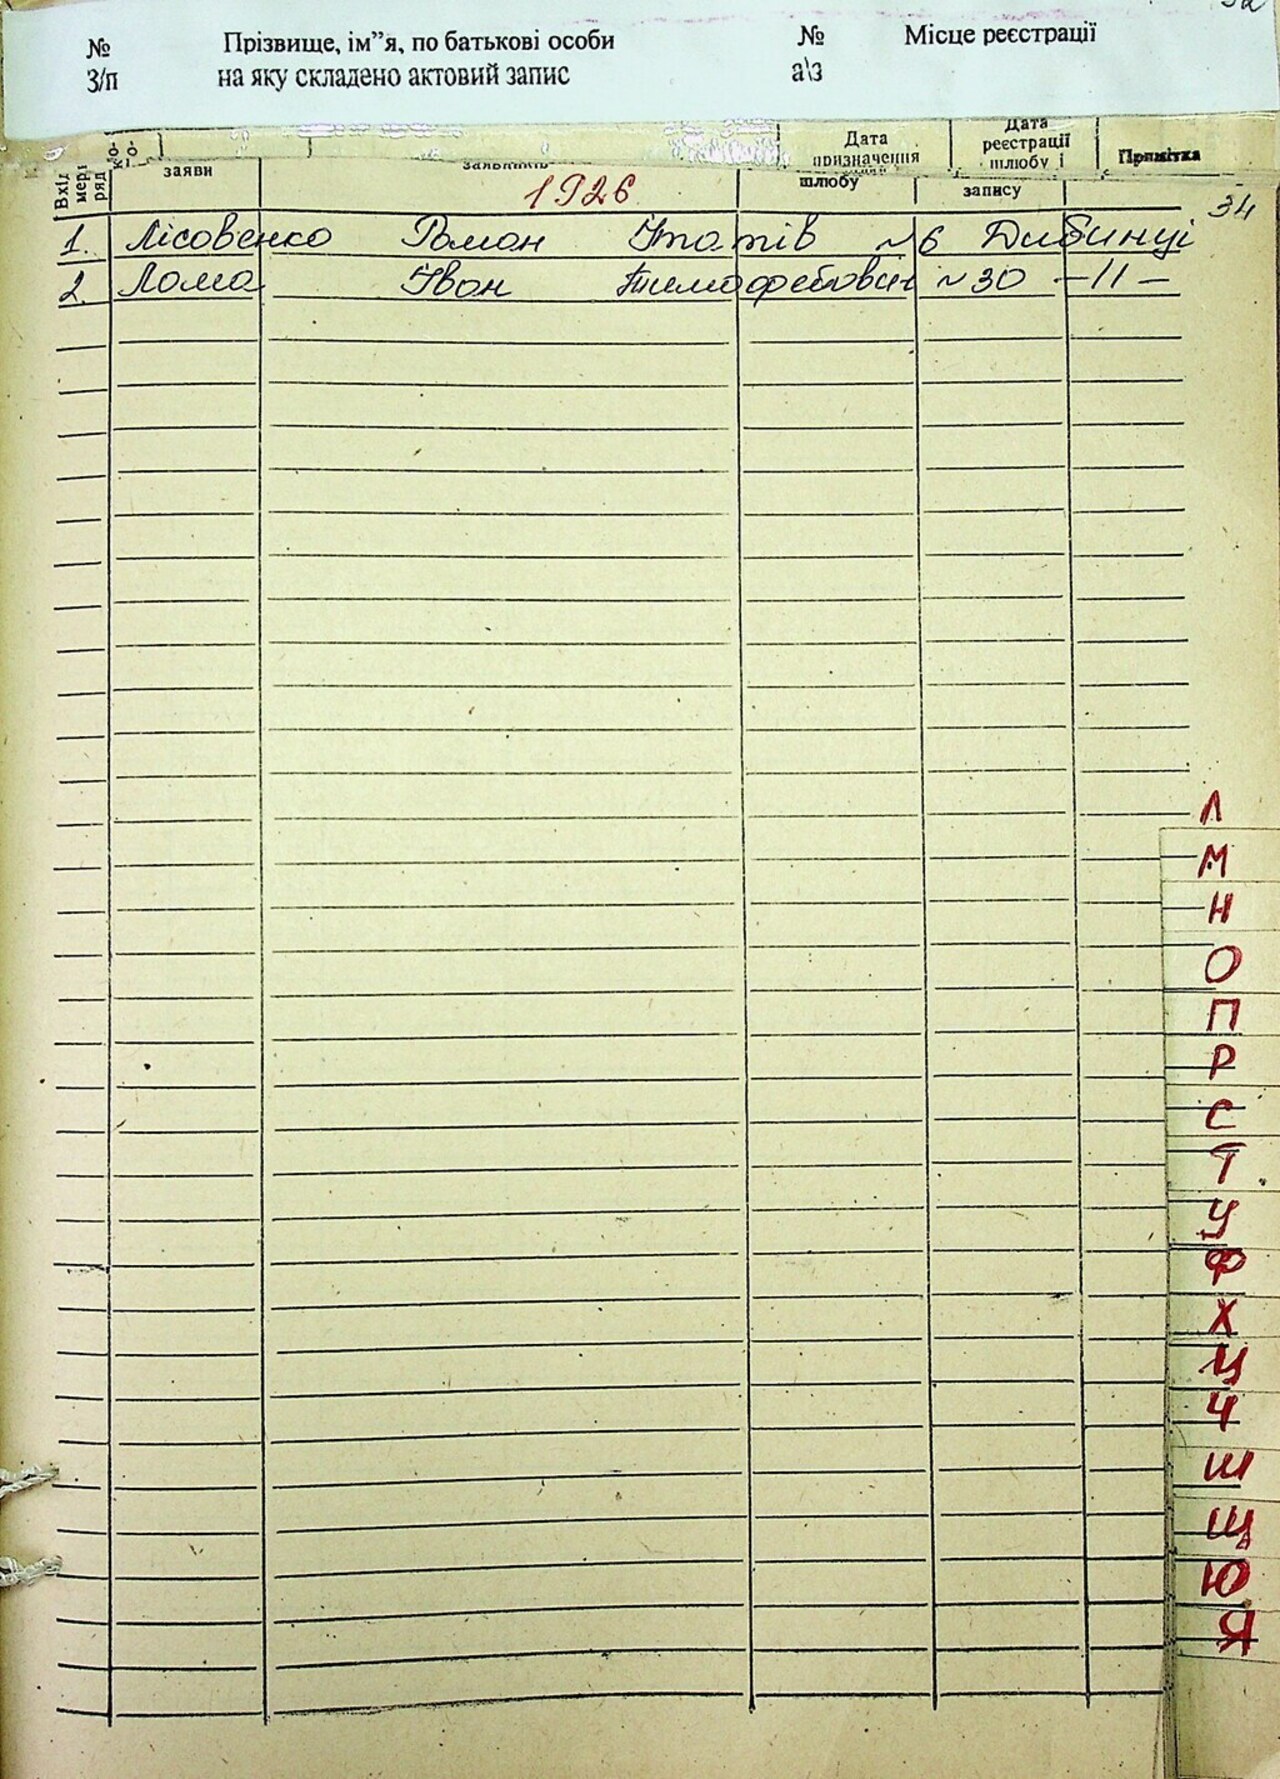 № Прізвище, ім”я, по батькові особи № Місце реєстрації
З/п на яку складено актовий запис а\з
заяви заявників Дата призначення шлюбу Дата реєстрації шлюбу і запису Примітка
1926
34
1. Лісовенко Роман Ігнатів №6 Дибинці
2. Лома Іван Тимофейович №30 -11-
Л
М
Н
О
П
Р
С
Т
У
Ф
Х
Ц
Ч
Ш
Щ
Ю
Я